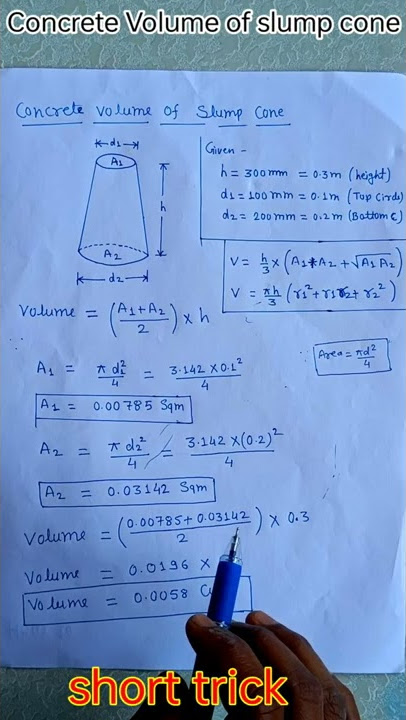 Concrete Volume of slump cone
Concrete Volume Of Slump Cone
d1
A1
h
A2
d2
Given -
h = 300mm = 0.3m (height)
d1 = 100mm = 0.1m (Top Circle)
d2 = 200mm = 0.2m (Bottom C)
V = h/3 × (A1+A2 + √A1A2)
V = πh/3 (r1² + r1r2 + r2²)
Volume = (A1+A2/2) × h
Area = πd²/4
A1 = πd1²/4 = 3.142 × 0.1²/4
A1 = 0.00785 Sqm
A2 = πd2²/4 = 3.142 × (0.2)²/4
A2 = 0.03142 Sqm
Volume = (0.00785 + 0.03142/2) × 0.3
Volume = 0.0196 ×
Volume = 0.0058 C
short trick